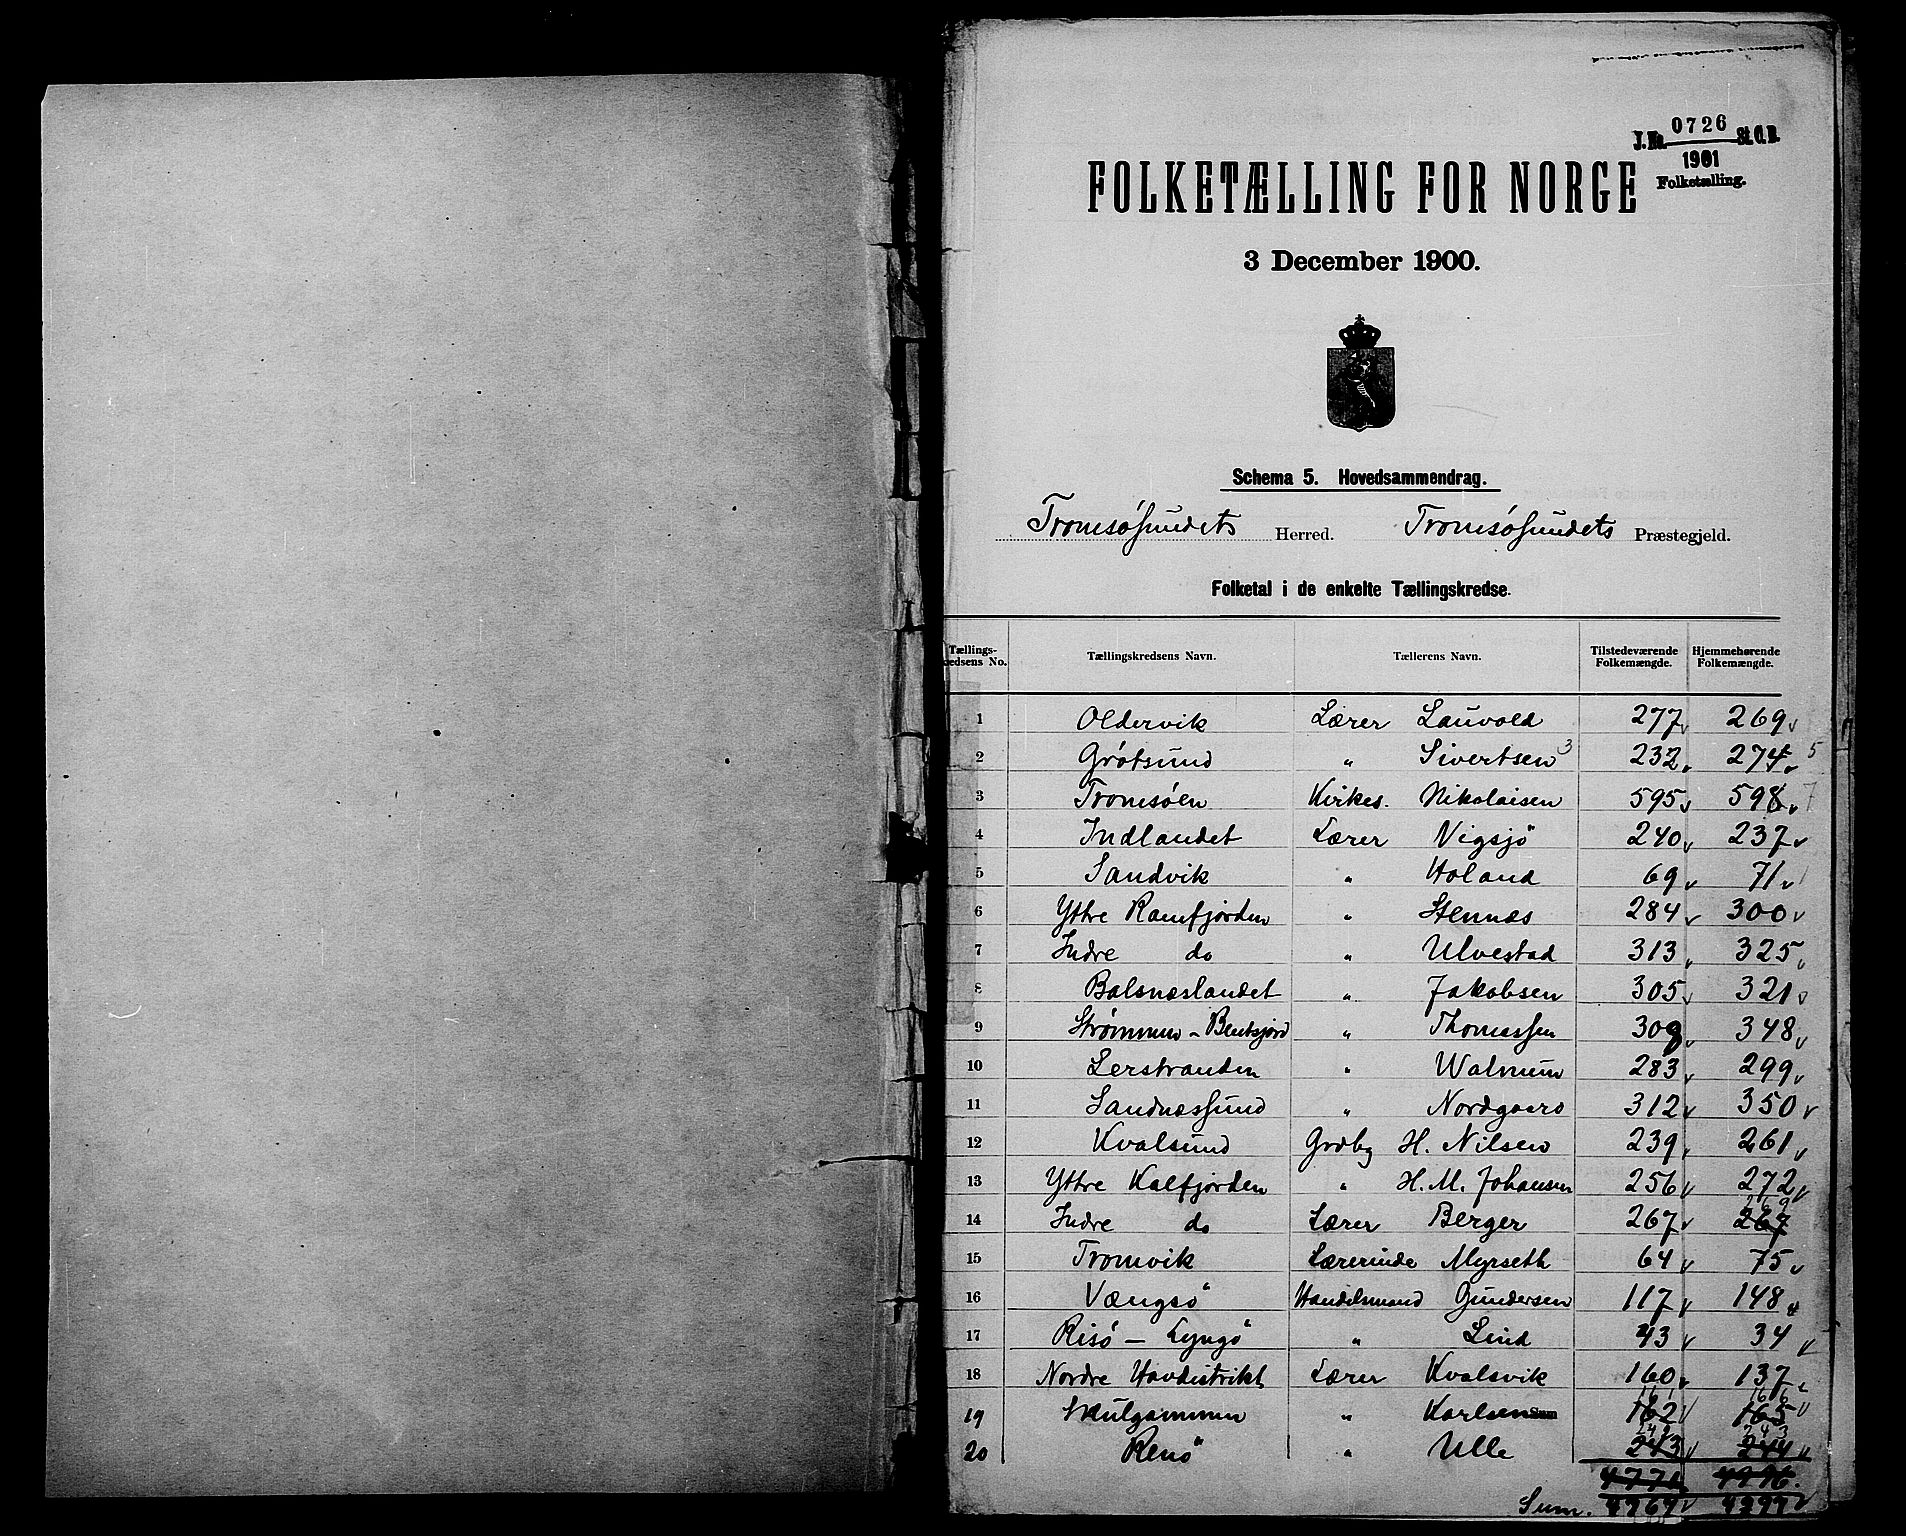 J.No. 0726 St.C.B.
1901
Folketælling.
FOLKETÆLLING FOR NORGE
3 December 1900.
Schema 5. Hovedsammendrag.
Tromsøsundets Herred. Tromsøsundets Præstegjeld.
Folketal i de enkelte Tællingskredse.
Tællings-kredsens No. Tællingskredsens Navn. Tællerens Navn. Tilstedeværende Folkemængde. Hjemmehørende Folkemængde.
1 Oldervik Lærer Lauvold 277 269
2 Grøtsund " Sivertsen 232 274 5
3 Tromsøen Kirkes. Nikolaisen 595 598 7
4 Indlandet Lærer Vigsjö 240 237
5 Sandvik " Holand 69 71
6 Yttre Ramfjorden " Stennæs 284 300
7 Indre do " Ulvestad 313 325
8 Balsnæslandet " Jakobsen 305 321
9 Strømmen - Bentsjord " Thomassen 309 348
10 Lerstranden " Walnum 283 299
11 Sandnæssund " Nordgaard 312 350
12 Kvalsund Grdbg H. Nilsen 239 261
13 Yttre Kalfjorden " H. M. Johansen 256 272
14 Indre do Lærer Berger 267 267 269
15 Tromvik Lærerinde Myrseth 64 75
16 Vængsö Handelsmand Gundersen 117 148
17 Risö - Lyngö " Lind 43 34
18 Nordre Havdistrikt Lærer Kvalsvik 160 137
19 Skulgammen " Karlsen 162 161 165 166
20 Renö " Ulle 243 242 244 243
Sum.